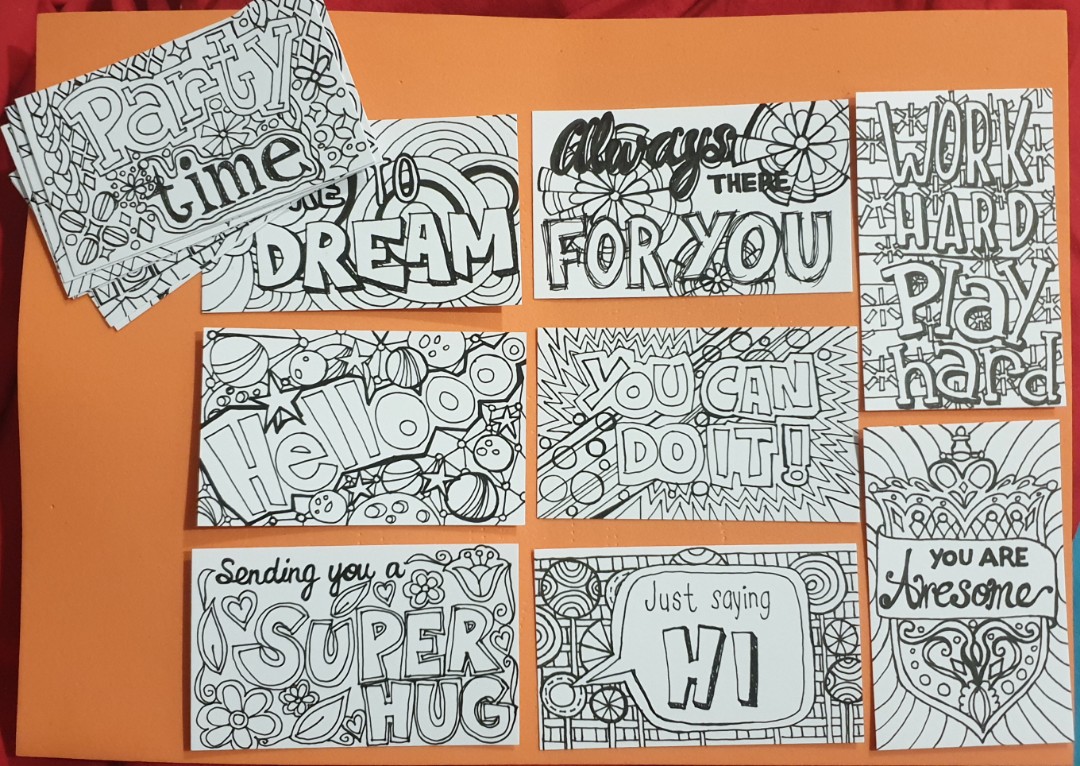 Party
time
TO
DREAM
Always
THERE
FOR YOU
WORK
HARD
Play
hard
Hellooo
YOU CAN
DO IT!
YOU ARE
Awesome
Sending you a
SUPER
HUG
Just saying
HI